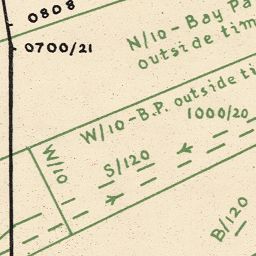 0808
0700/21
N/10 - Bay
outside
W/10-B.P. outside
1000/20
W/10
S/120
B/120